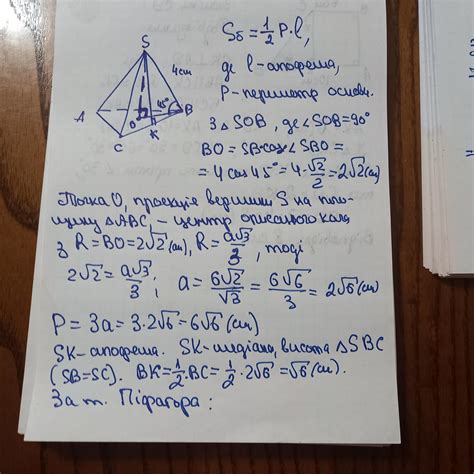 S
4cm
A
O
45°
B
C
K
Sб = 1/2 P·l,
де l-апофема,
P-периметр основи.
З △SOB, де ∠SOB=90°
BO = SB·cos∠SBO =
= 4 cos 45° = 4·√2/2 = 2√2 (см)
Точка O, проекція вершини S на пло-
щину △ABC, - центр описаного кола
з R=BO=2√2 (см), R = a√3/3, тоді
2√2 = a√3/3; a = 6√2/√3 = 6√6/3 = 2√6 (см)
P = 3a = 3·2√6 = 6√6 (см)
SK-апофема. SK-медіана, висота △SBC
(SB=SC). BK = 1/2·BC = 1/2·2√6 = √6 (см).
За т. Піфагора: